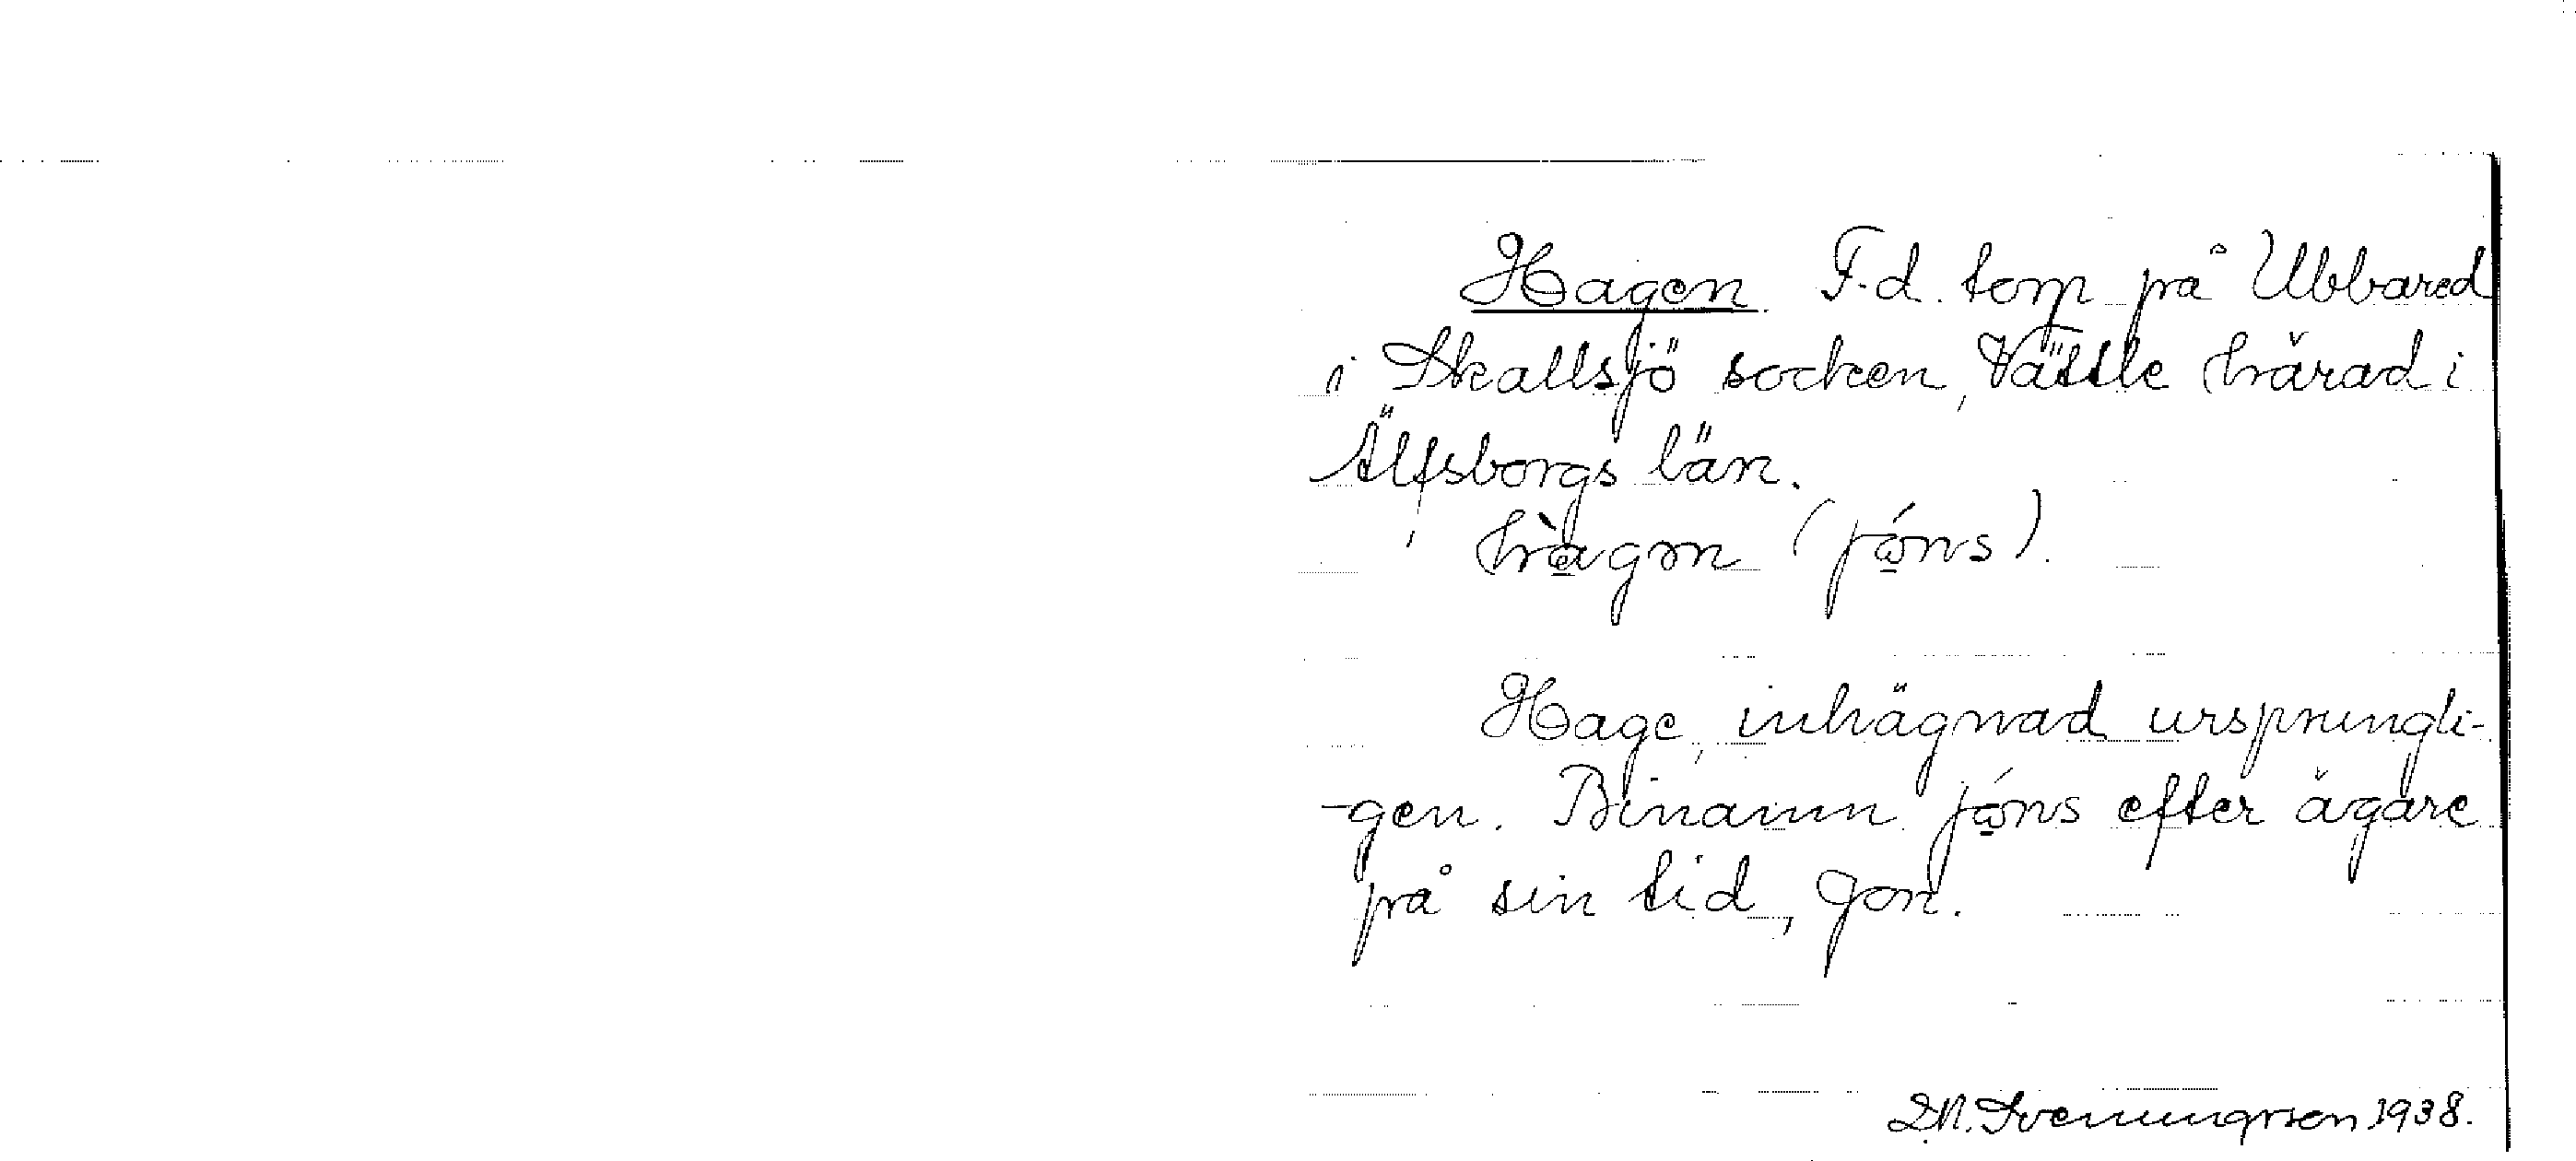 Hagen F.d. torp på Ubbared
i Skallsjö socken, Vättle härad i
Älfsborgs län.
hàgọn (jǿns).
Hage, inhägnad ursprungli-
-gen. Binamn jǿns efter ägare
på sin tid, Jon.
Svenungsson 1938.